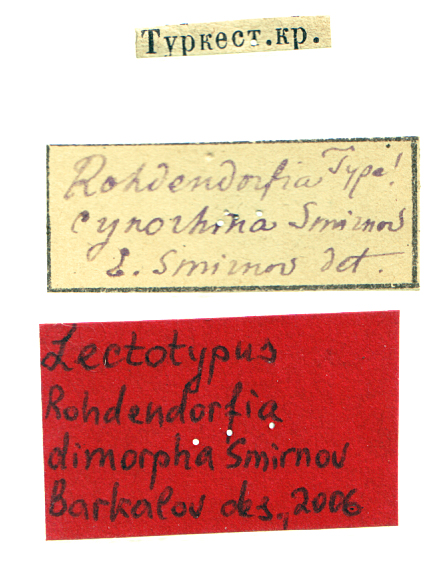 Туркест.кр.
Rohdendorfia Type!
cynorhina Smirnov
E. Smirnov det.
Lectotypus
Rohdendorfia
dimorpha Smirnov
Barkalov des., 2006